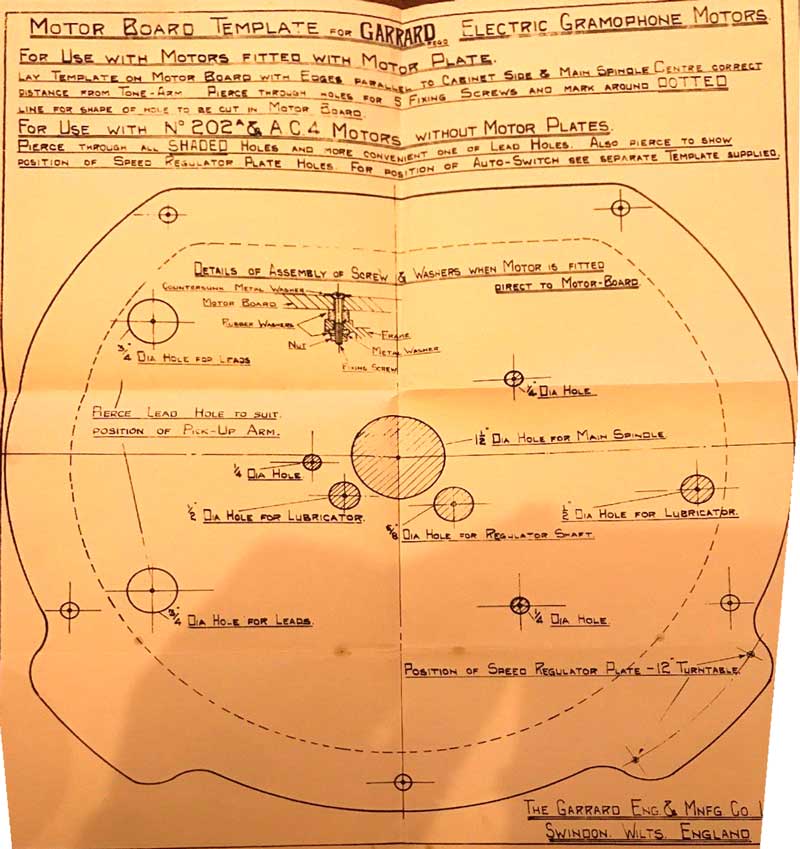 MOTOR BOARD TEMPLATE FOR GARRARD REGD ELECTRIC GRAMOPHONE MOTORS.
FOR USE WITH MOTORS FITTED WITH MOTOR PLATE.
LAY TEMPLATE ON MOTOR BOARD WITH EDGES PARALLEL TO CABINET SIDE & MAIN SPINDLE CENTRE CORRECT
DISTANCE FROM TONE-ARM PIERCE THROUGH HOLES FOR 5 FIXING SCREWS AND MARK AROUND DOTTED
LINE FOR SHAPE OF HOLE TO BE CUT IN MOTOR BOARD.
FOR USE WITH No 202A & A C 4 MOTORS WITHOUT MOTOR PLATES.
PIERCE THROUGH ALL SHADED HOLES AND MORE CONVENIENT ONE OF LEAD HOLES. ALSO PIERCE TO SHOW
POSITION OF SPEED REGULATOR PLATE HOLES. FOR POSITION OF AUTO-SWITCH SEE SEPARATE TEMPLATE SUPPLIED.
DETAILS OF ASSEMBLY OF SCREW & WASHERS WHEN MOTOR IS FITTED
DIRECT TO MOTOR-BOARD.
COUNTERSUNK METAL WASHER
MOTOR BOARD
RUBBER WASHERS
FRAME
NUT
METAL WASHER
FIXING SCREW
3/4" DIA HOLE FOR LEADS
1/4" DIA HOLE
PIERCE LEAD HOLE TO SUIT
POSITION OF PICK-UP ARM.
1 1/2" DIA HOLE FOR MAIN SPINDLE
1/4" DIA HOLE
1/2" DIA HOLE FOR LUBRICATOR.
5/8" DIA HOLE FOR REGULATOR SHAFT.
1/2" DIA HOLE FOR LUBRICATOR.
3/4" DIA HOLE FOR LEADS.
1/4" DIA HOLE.
POSITION OF SPEED REGULATOR PLATE - 12" TURNTABLE.
THE GARRARD ENG. & MNFG CO
SWINDON. WILTS. ENGLAND